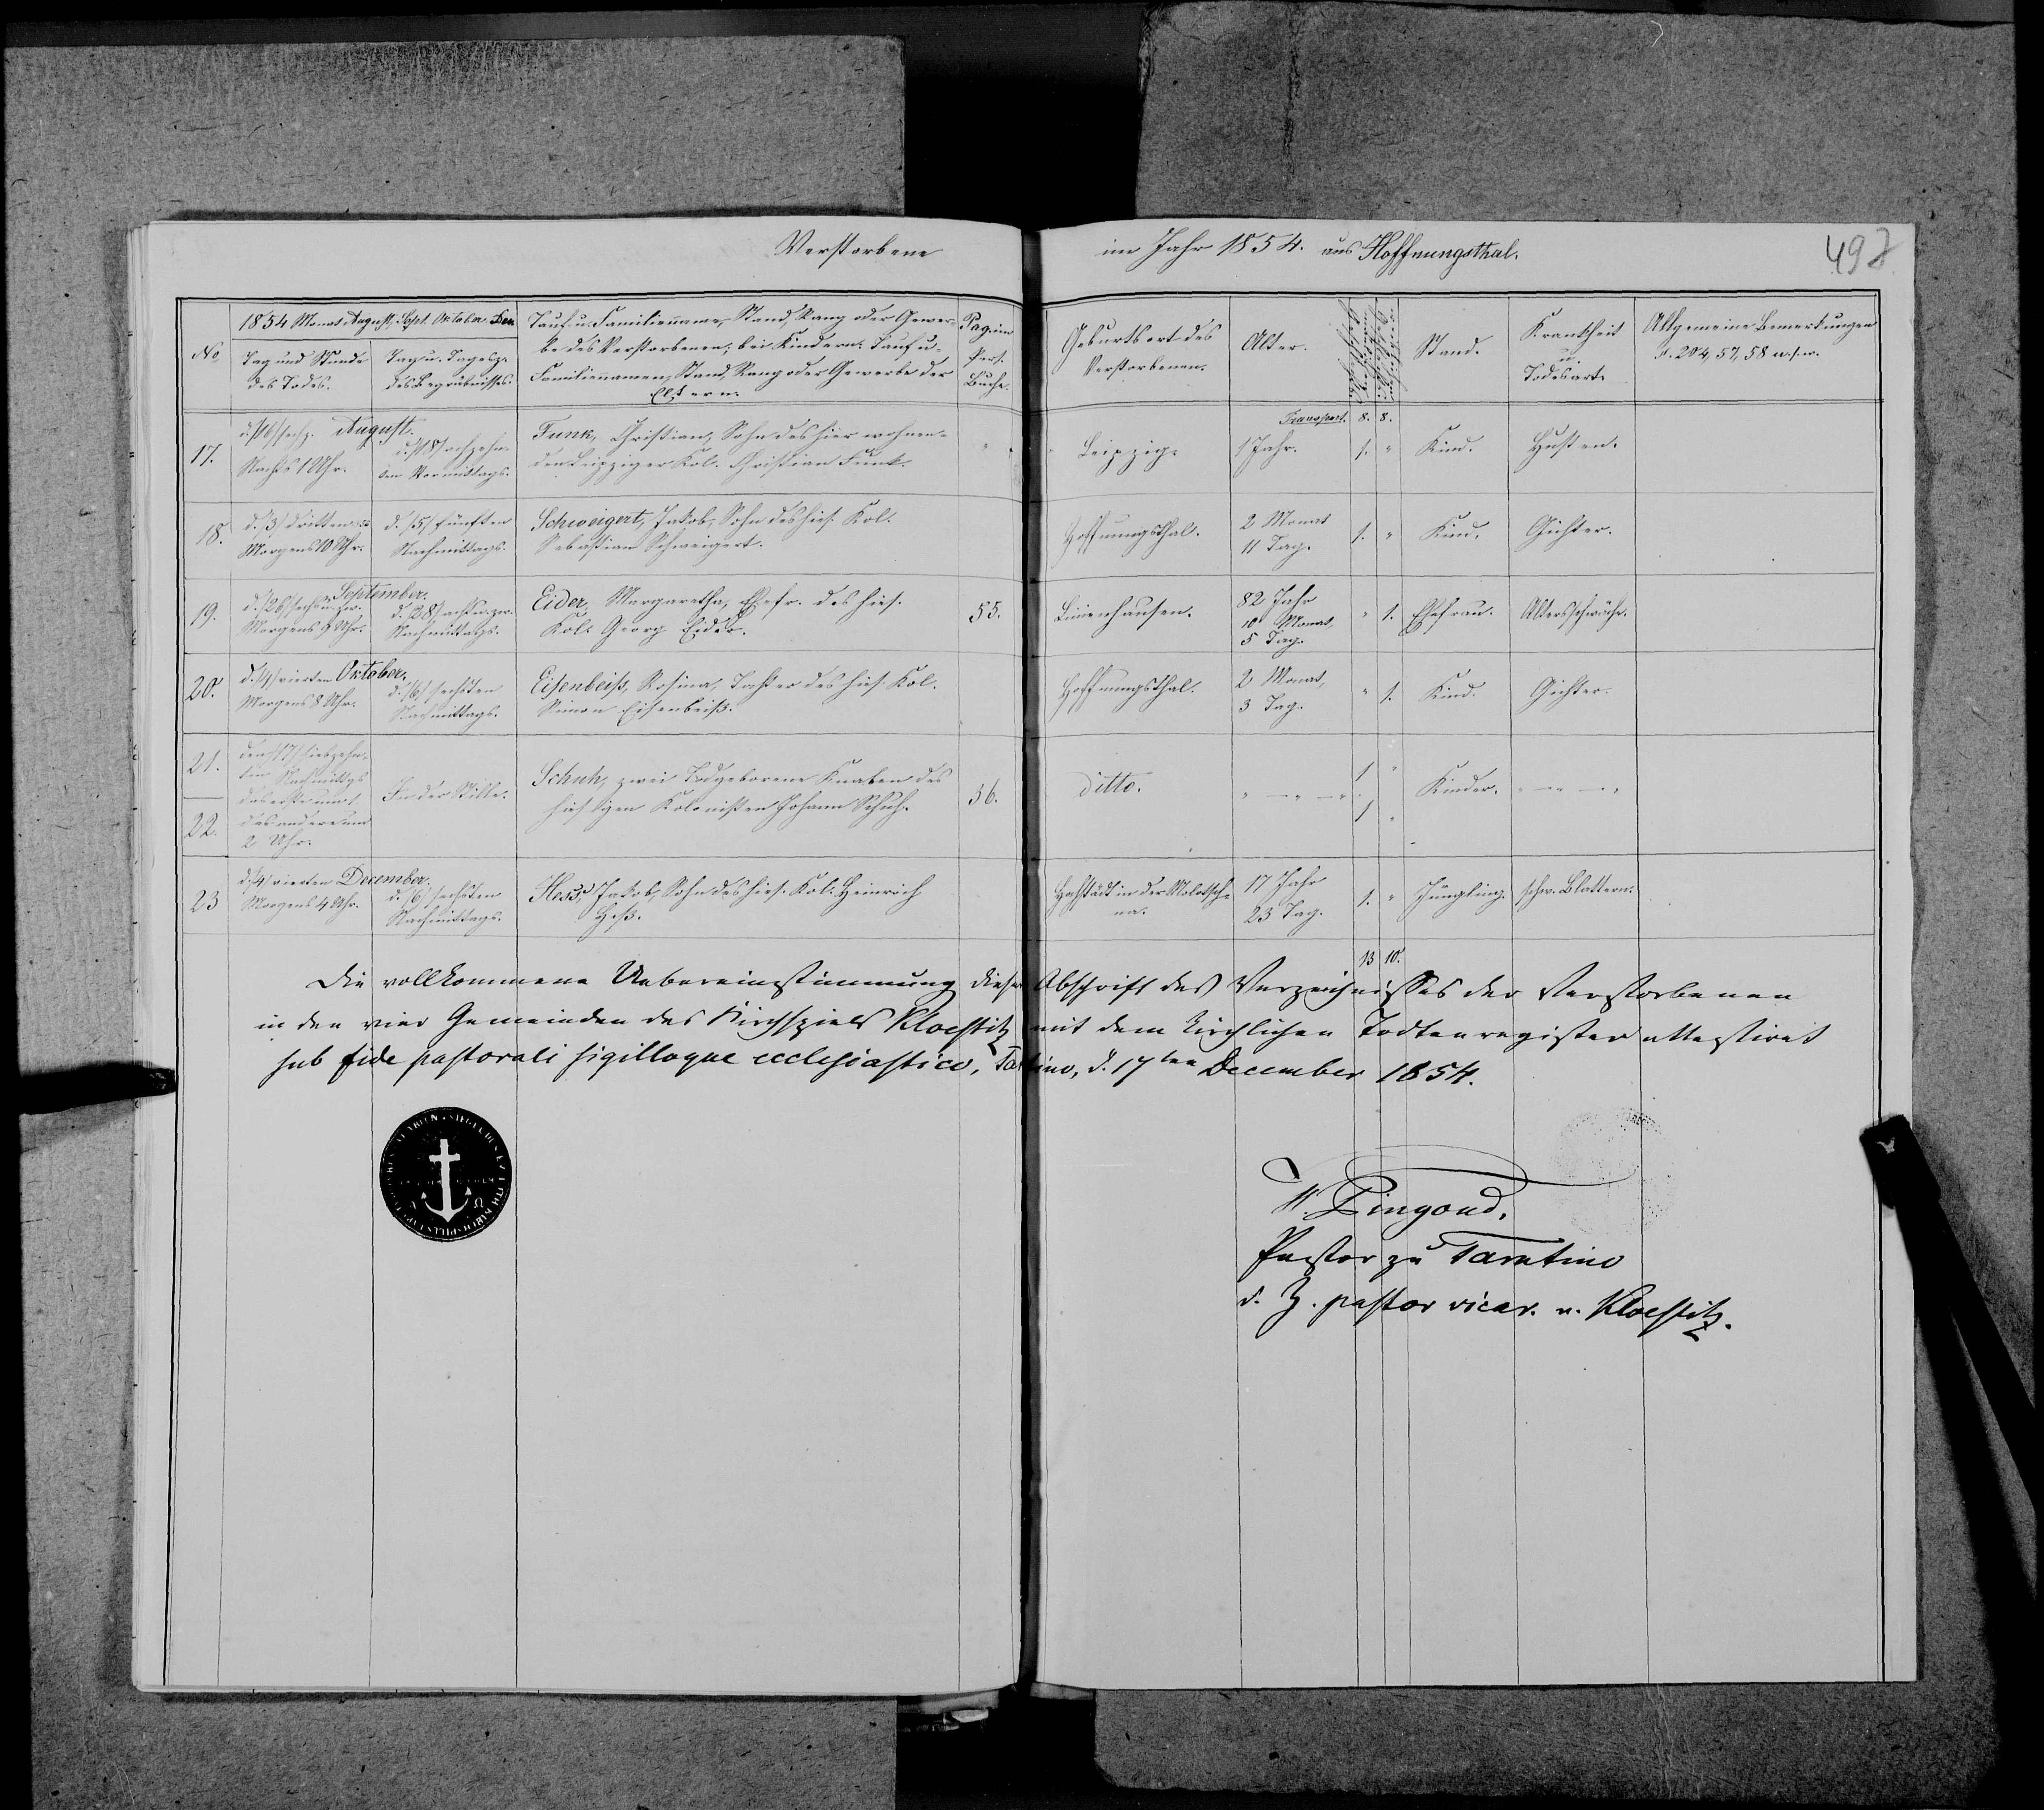 Verstorbene im Jahr 1854. aus Hoffnungsthal.
497
No
1854 Monat August, Sept. Oktober. Dec.
Tag und Stunde
des Todes.
Tag u. Tagesz.
des Begräbnisses.
Tauf u. Familienname, Stand, Rang oder Gewer-
be des Verstorbenen, bei Kindern: Tauf u.
Familiennamen, Stand, Rang oder Gewerbe der
Eltern.
Pag. im
Pers.
Buche.
Geburtsort des
Verstorbenen.
Alter.
Stand.
Krankheit
u.
Todesart.
Allgemeine Bemerkungen
n. 204, 57, 58 u. s. w.
Transport. 8. 8.
17.
d. /16/ sechz. August.
Nachts 1 Uhr.
d. /18/ achzehn-
ten Vormittags.
Funk, Christian, Sohn des hier wohnen-
den Leipziger Kol. Christian Funk.
"
Leipzig.
1 Jahr.
1. "
Kind.
Husten.
18.
d. /3/ dritten
Morgens 10 Uhr.
d. /5/ fünften
Nachmittags.
Schweigert, Jakob, Sohn des hies. Kol.
Sebastian Schweigert.
Hoffnungsthal.
2 Monat
11 Tag.
1. "
Kind.
Gichter.
September.
19.
d. /26/ sechs u. zw.
Morgens 9 Uhr.
d. /28/ acht u. zw.
Nachmittags.
Eider, Margaretha, Ehefr. des hies.
Kol. Georg Eider.
55.
82 Jahr
10 Monat,
5 Tag.
" 1.
Ehefrau.
Altersschwäche.
20.
d. /4/ vierten Oktober.
Morgens 8 Uhr.
d. /6/ sechsten
Nachmittags.
Eisenbeiß, Rosina, Tochter des hies. Kol.
Simon Eisenbeiß.
Hoffnungsthal.
2 Monat,
3 Tag.
" 1.
Kind.
Gichter.
21.
22.
den /17/ siebzehn-
ten Nachmittgs
das erste um 1.
das andere um
2 Uhr.
In der Stille.
Schuh, zwei Todgeborene Knaben des
hiesigen Kolonisten Johann Schuh.
36.
ditto.
" — " — "
1 "
1 "
Kinder.
" — " — "
23
d. /4/ vierten December.
Morgens 4 Uhr.
d. /6/ sechsten
Nachmittags.
Hess, Jakob, Sohn des hies. Kol. Heinrich
Heß.
Hochstädt in der Molotsch-
na.
17 Jahr
23 Tag.
1. "
Jüngling.
schw. Blattern.
13 10.
Die vollkommene Uebereinstimmung dieser Abschrift des Verzeichnisses der Verstorbenen
in den vier Gemeinden des Kirchspiels Kloestitz mit dem kirchlichen Todtenregister attestiret
sub fide pastorali sigilloque ecclesiastico, Tarutino, d. 17ten December 1854.
W. Pingoud,
Pastor zu Tarutino
d. Z. pastor vicar. v. Kloestitz.